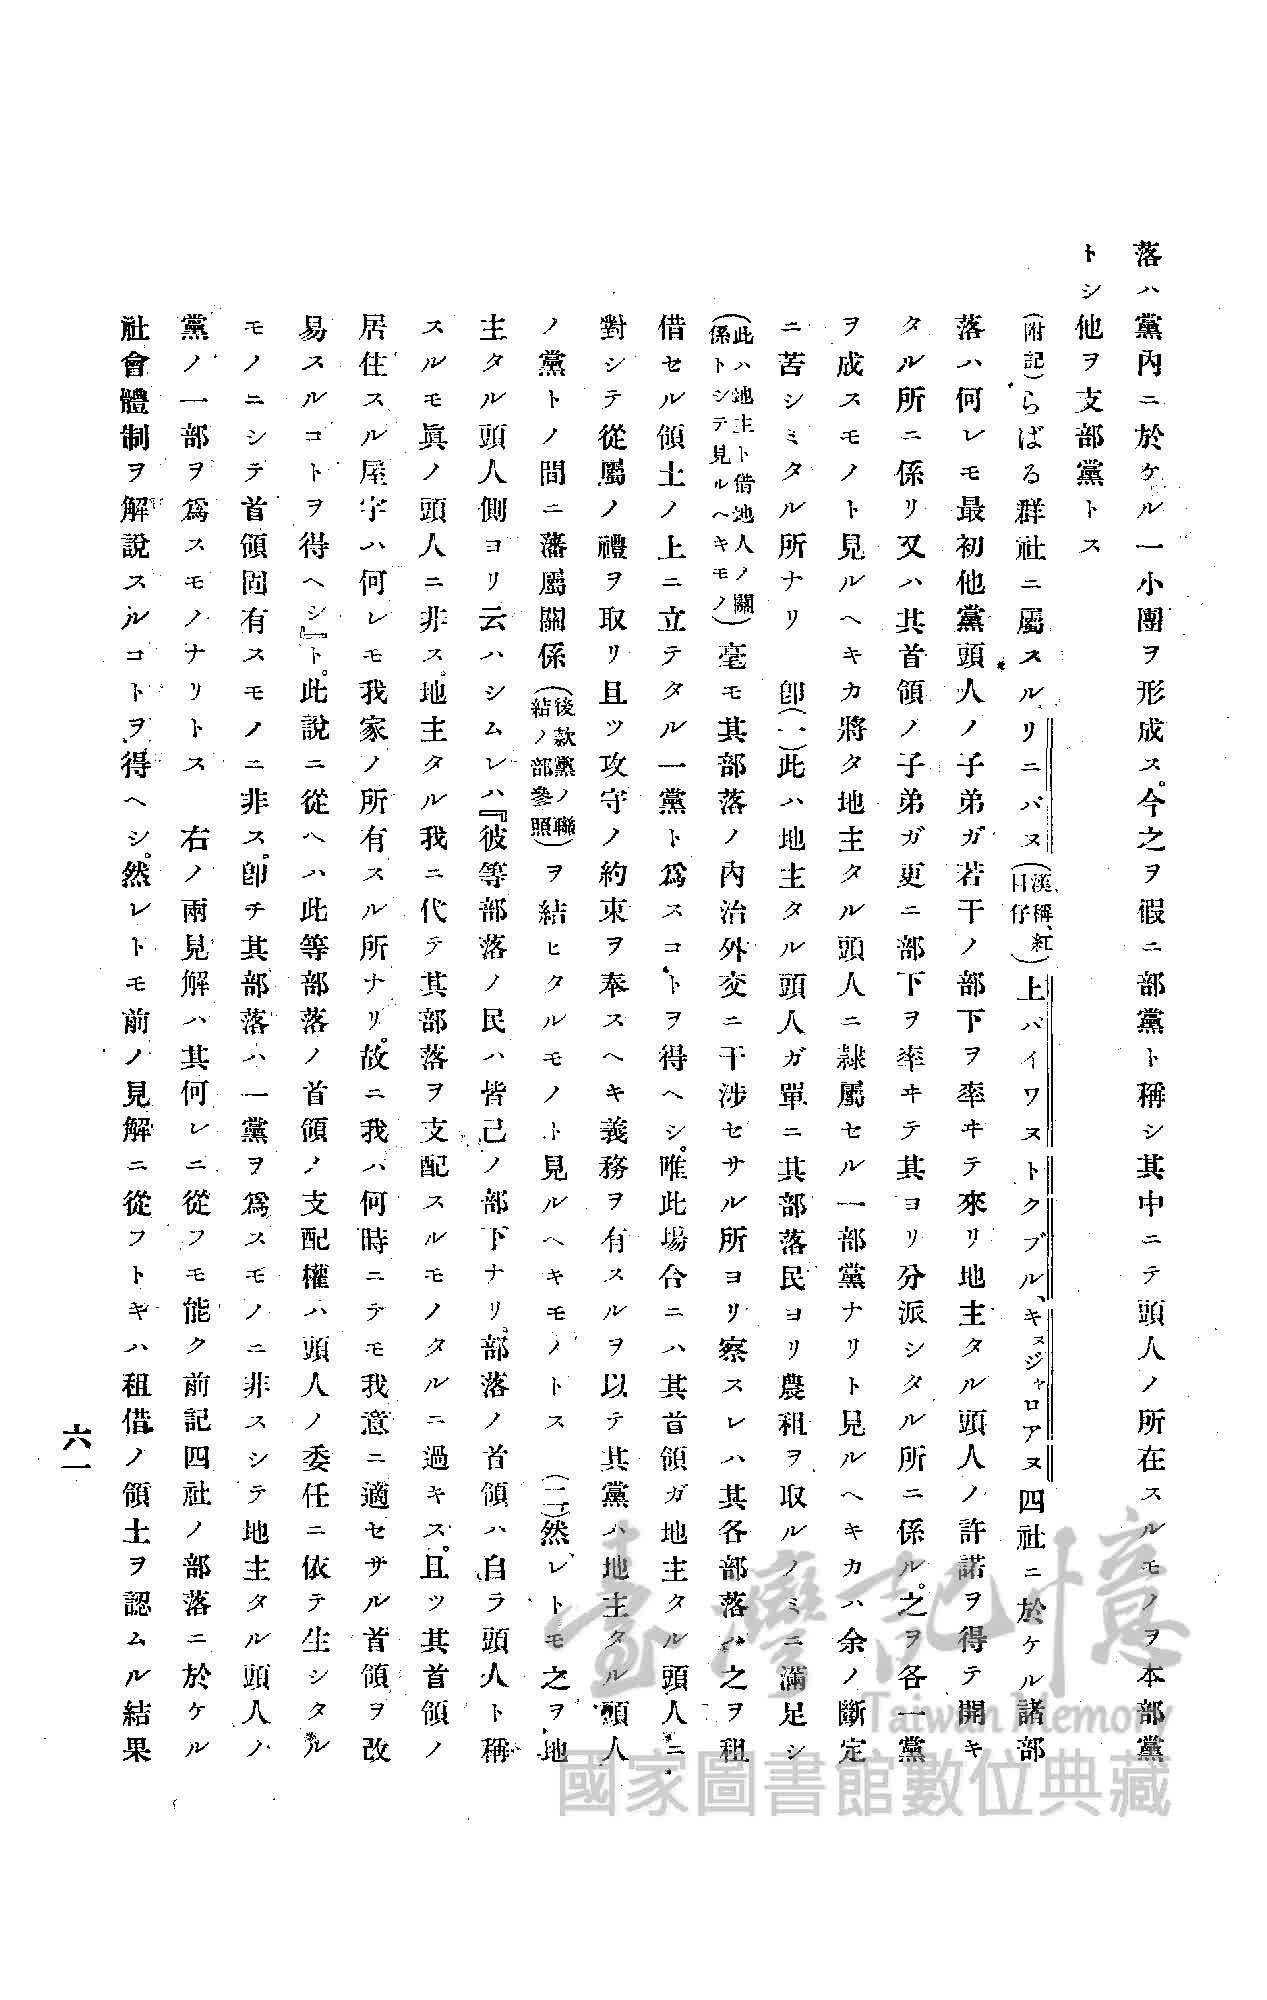 落ハ黨內ニ於ケル一小團ヲ形成ス。今之ヲ假ニ部黨ト稱シ其中ニテ頭人ノ所在スルモノヲ本部黨
トシ他ヲ支部黨トス
(附記)らばる群社ニ屬スルリニバヌ(漢稱、紅目仔)上バイワヌトクブル、キヌジャロアヌ四社ニ於ケル諸部
落ハ何レモ最初他黨頭人ノ子弟ガ若干ノ部下ヲ率ヰテ來リ地主タル頭人ノ許諾ヲ得テ開キ
タル所ニ係リ又ハ其首領ノ子弟ガ更ニ部下ヲ率ヰテ其ヨリ分派シタル所ニ係ル。之ヲ各一黨
ヲ成スモノト見ルヘキカ將タ地主タル頭人ニ隷屬セル一部黨ナリト見ルヘキカハ余ノ斷定
ニ苦シミタル所ナリ 卽(一)此ハ地主タル頭人ガ單ニ其部落民ヨリ農租ヲ取ルノミニ滿足シ
(此ハ地主ト借地人ノ關係トシテ見ルヘキモノ)毫モ其部落ノ內治外交ニ干涉セサル所ヨリ察スレハ其各部落ハ之ヲ租
借セル領土ノ上ニ立テタル一黨ト爲スコトヲ得ヘシ。唯此場合ニハ其首領ガ地主タル頭人ニ
對シテ從屬ノ禮ヲ取リ且ツ攻守ノ約束ヲ奉スヘキ義務ヲ有スルヲ以テ其黨ハ地主タル頭人
ノ黨トノ間ニ藩屬關係(後款黨ノ聯結ノ部參照)ヲ結ヒタルモノト見ルヘキモノトス (二)然レトモ之ヲ地
主タル頭人側ヨリ云ハシムレハ『彼等部落ノ民ハ皆己ノ部下ナリ。部落ノ首領ハ自ラ頭人ト稱
スルモ眞ノ頭人ニ非ス。地主タル我ニ代テ其部落ヲ支配スルモノタルニ過キス。且ツ其首領ノ
居住スル屋宇ハ何レモ我家ノ所有スル所ナリ。故ニ我ハ何時ニテモ我意ニ適セサル首領ヲ改
易スルコトヲ得ヘシ』ト。此說ニ從ヘハ此等部落ノ首領ノ支配權ハ頭人ノ委任ニ依テ生シタル
モノニシテ首領固有スモノニ非ス。卽チ其部落ハ一黨ヲ爲スモノニ非スシテ地主タル頭人ノ
黨ノ一部ヲ爲スモノナリトス 右ノ兩見解ハ其何レニ從フモ能ク前記四社ノ部落ニ於ケル
社會體制ヲ解說スルコトヲ得ヘシ。然レトモ前ノ見解ニ從フトキハ租借ノ領土ヲ認ムル結果
六一
臺灣記憶
Taiwan Memory
國家圖書館數位典藏